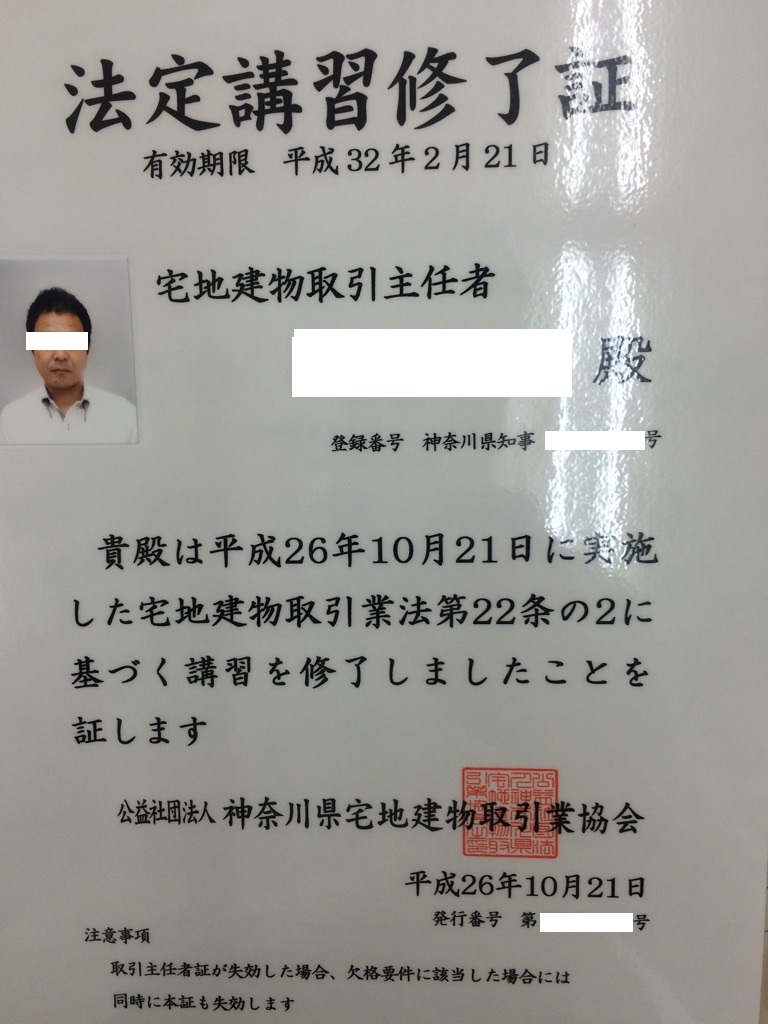 法定講習修了証
有効期限　平成32年2月21日
宅地建物取引主任者
殿
登録番号　神奈川県知事　号
貴殿は平成26年10月21日に実施
した宅地建物取引業法第22条の2に
基づく講習を修了しましたことを
証します
公益社団法人 神奈川県宅地建物取引業協会
平成26年10月21日
発行番号　第　号
注意事項
取引主任者証が失効した場合、欠格要件に該当した場合には
同時に本証も失効します